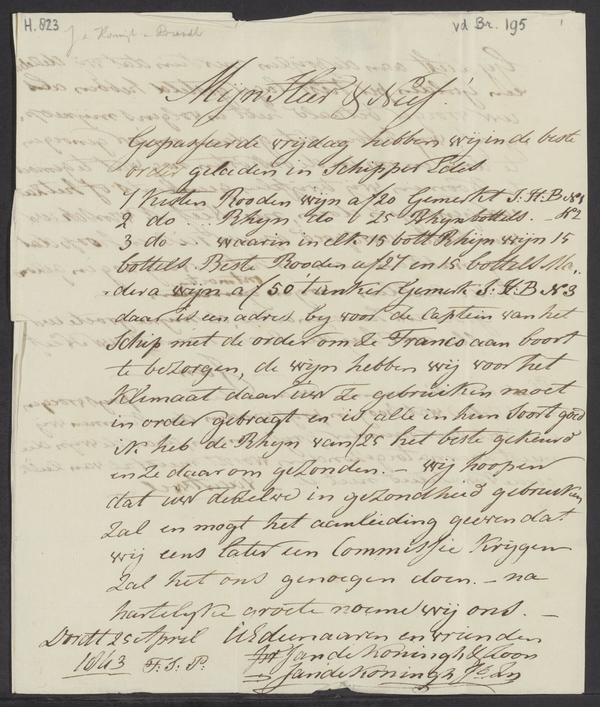 H. 823
vd Br. 195
Mijn Heer & Neef!
Gepasseerde vrijdag hebben wij in de beste
order geladen in Schipper
1 Kisten Rooden wijn a ƒ20 Gemerkt J.H.B No 1
2 do .. Rhyn do " 25 Rhijnbottels. - No 2
3 do - waarin in elk 15 bott Rhijn wijn 15
bottels Beste Rooden a ƒ27 en 15 bottels Ma„
dera wijn a ƒ 50 't anker Gemerk J.H.B No 3
daar is een adres by voor de Captein van het
Schip met de order om ze Franco aan boort
te bezorgen, de wijn hebben wij voor het
Klimaat daar uw ze gebruiken moet
in order gebragt en is alle in hun Soort goed
ik heb de Rhyn van ƒ25 het beste gekeurd
en ze daarom gezonden. - wij hoopen
dat uw dezelve in gezondheid gebruiken
zal en mogt het aanleiding geeven dat
wij eens later een Commissie Krijgen
zal het ons genoegen doen. - na
hartelijke groete noeme wij ons. -
Dordt 25 April UEd dienaaren en vrienden
1843 T.S.P. Jan de Koningh & Zoon
Jan de Koningh